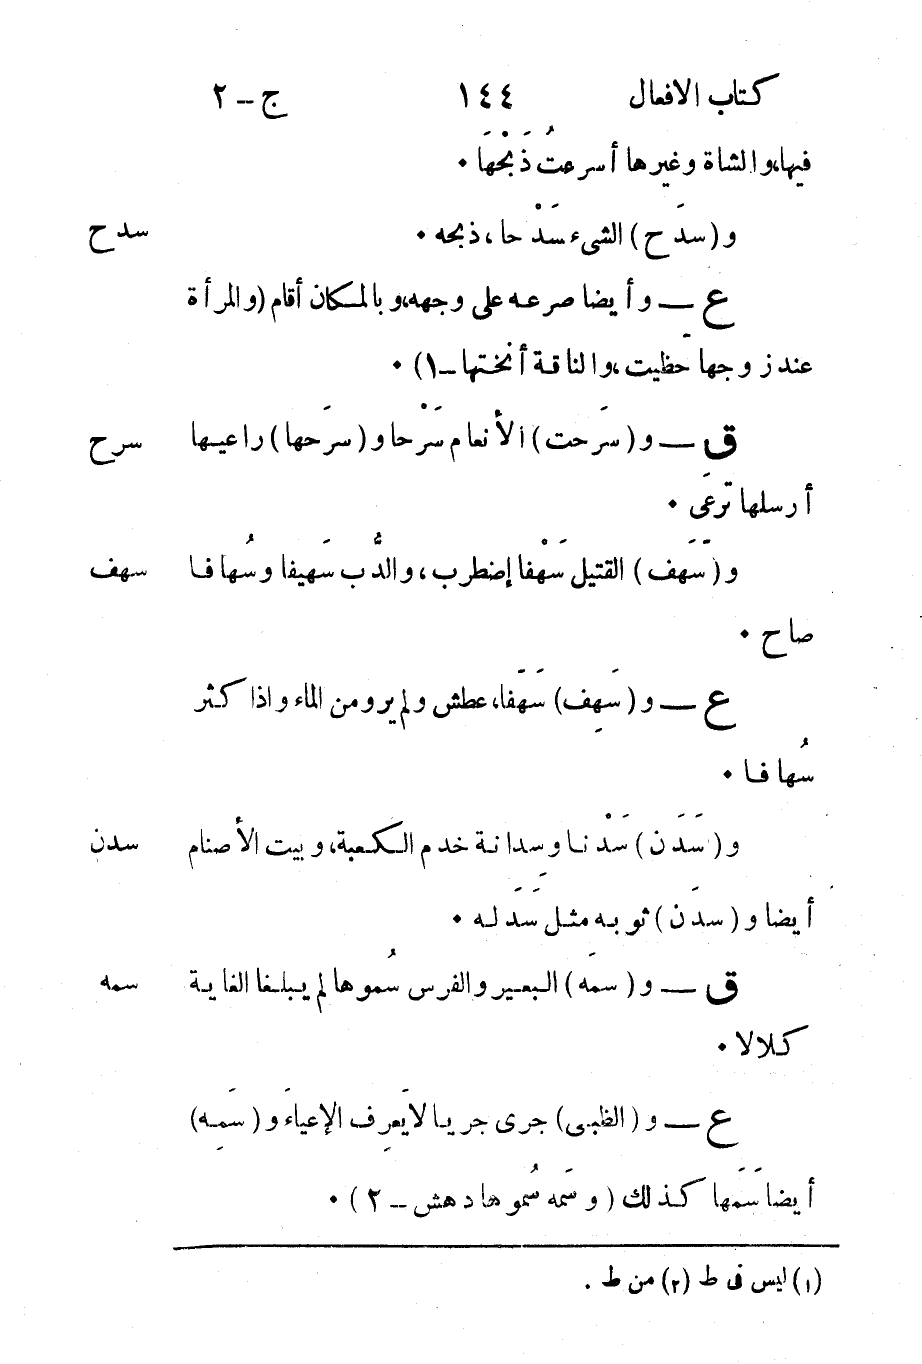 كتاب الافعال ١٤٤ ج – ٢
فيها، والشاة وغيرها أسرعتُ ذَبْحَهَا ٠
و (سدَح) الشىء سَدْحا، ذبحه ٠ سدح
ع — و أيضا صرعه على وجهه، و بالمكان أقام (والمرأة
عند زوجها حَظيت، والناقة أنختها – ١) ٠
ق — و (سرَحت) الأنعام سَرْحا و (سرَحها) راعيها سرح
أرسلها ترعَى ٠
و (سَهَف) القتيل سَهْفا إضطرب، والدُّب سَهيفا و سُهافا سهف
صاح ٠
ع — و (سَهِف) سَهَفا، عطش ولم يرو من الماء و اذا كثر
سُهافا ٠
و (سَدَن) سَدْنا و سِدانة خدم الكعبة، و بيت الأصنام سدن
أيضا و (سدَن) ثوبه مثل سَدَله ٠
ق — و (سمَه) البعير والفرس سُموها لم يبلغا الغاية سمه
كلالا ٠
ع — و (الظبى) جرى جريا لا يَعرِف الإعياءَ و (سَمِه)
أيضا سَمَها كذلك (و سَمه سُموها دهش – ٢) ٠
(١) ليس فى ط (٢) من ط .